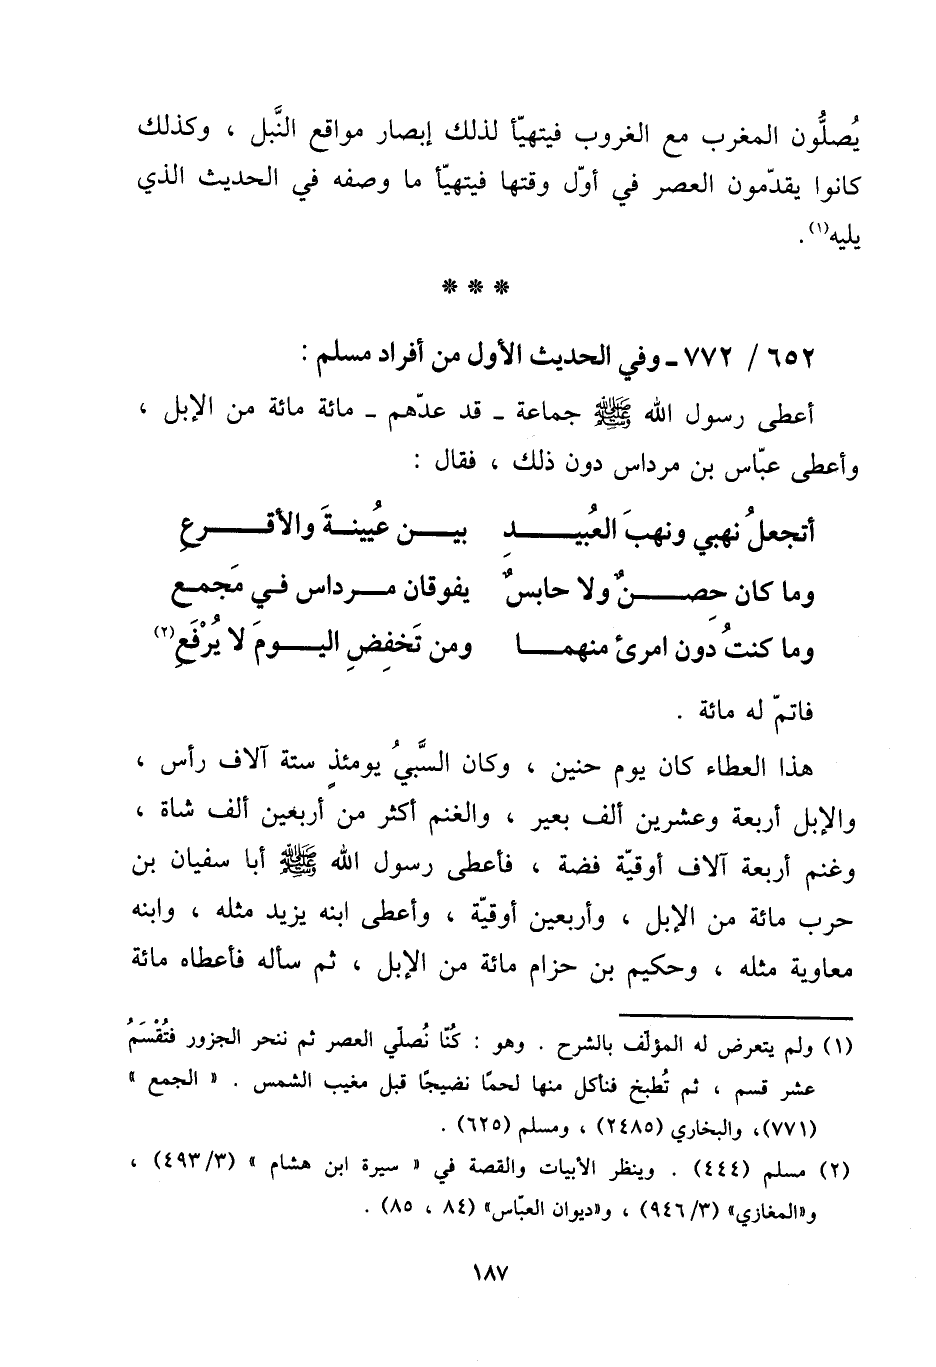 يُصلُّون المغرب مع الغروب فيتهيّأ لذلك إبصار مواقع النَّبل ، وكذلك
كانوا يقدّمون العصر في أوّل وقتها فيتهيّأ ما وصفه في الحديث الذي
يليه(١).
* * *
٦٥٢ / ٧٧٢ ـ وفي الحديث الأول من أفراد مسلم :
أعطى رسول الله ﷺ جماعة ـ قد عدّهم ـ مائة مائة من الإبل ،
وأعطى عبّاس بن مرداس دون ذلك ، فقال :
أتجعلُ نهبي ونهبَ العُبيـــدِ بيـن عُيينةَ والأقـــرعِ
وما كان حِصـــنٌ ولا حابسٌ يفوقان مـرداس فـي مَجمعِ
وما كنتُ دون امرئ منهمـــا ومن تَخفِضِ اليـــومَ لا يُرْفَعِ(٢)
فاتمّ له مائة .
هذا العطاء كان يوم حنين ، وكان السَّبيُ يومئذٍ ستة آلاف رأس ،
والإبل أربعة وعشرين ألف بعير ، والغنم أكثر من أربعين ألف شاة ،
وغنم أربعة آلاف أوقيّة فضة ، فأعطى رسول الله ﷺ أبا سفيان بن
حرب مائة من الإبل ، وأربعين أوقيّة ، وأعطى ابنه يزيد مثله ، وابنه
معاوية مثله ، وحكيم بن حزام مائة من الإبل ، ثم سأله فأعطاه مائة
(١) ولم يتعرض له المؤلّف بالشرح . وهو : كُنّا نُصلّي العصر ثم ننحر الجزور فتُقْسَمُ
عشر قسم ، ثم تُطبخ فنأكل منها لحمًا نضيجًا قبل مغيب الشمس . « الجمع »
(٧٧١)، والبخاري (٢٤٨٥) ، ومسلم (٦٢٥) .
(٢) مسلم (٤٤٤) . وينظر الأبيات والقصة في « سيرة ابن هشام » (٤٩٣/٣) ،
و«المغازي» (٩٤٦/٣) ، و«ديوان العبّاس» (٨٤ ، ٨٥) .
١٨٧